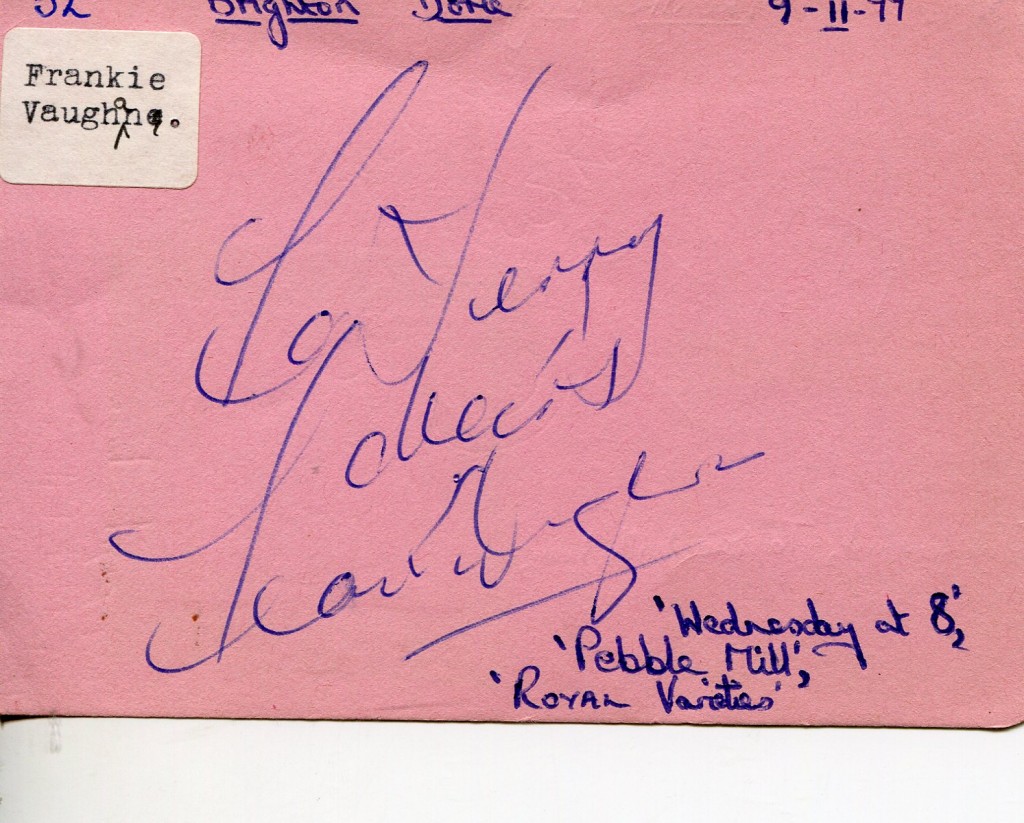 52 Brighton Dome 9-11-77
Frankie
Vaughan.
To Terry
Cheers
Frankie Vaughan
'Wednesday at 8',
'Pebble Mill',
'Royal Varieties'